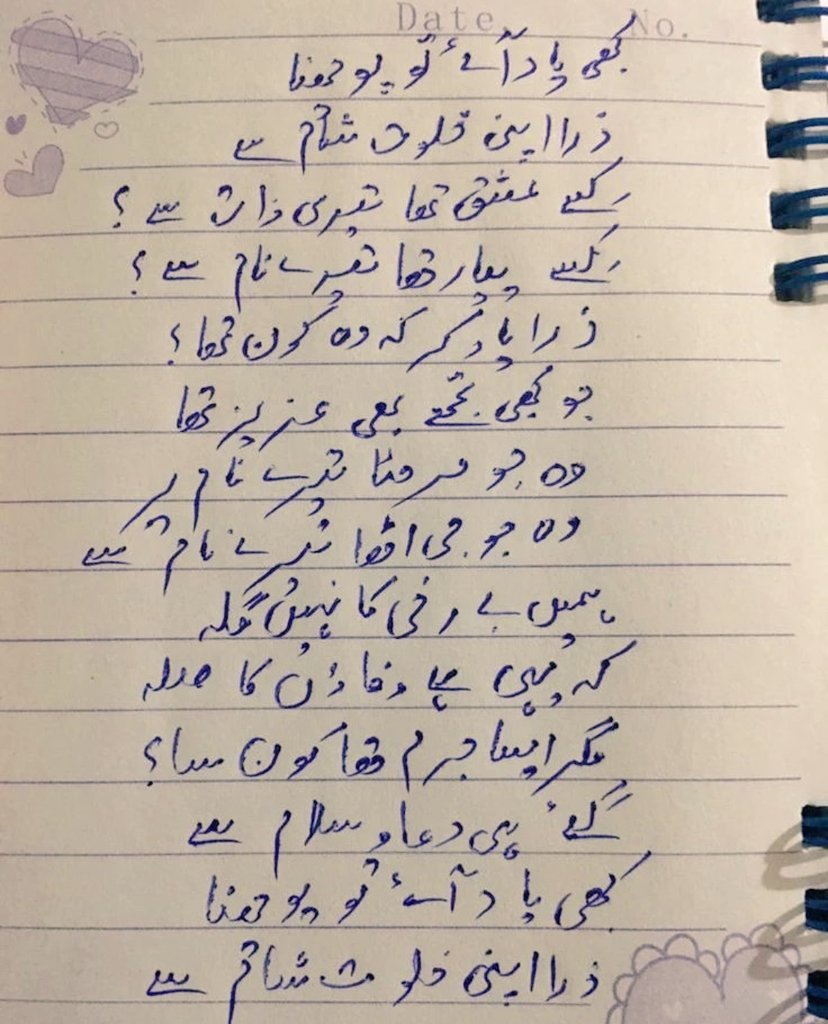 Date No.
کبھی یاد آئے تو پوچھنا
ذرا اپنی خلوت شام سے
کسے عشق تھا تیری ذات سے؟
کسے پیار تھا تیرے نام سے؟
ذرا یاد کر کہ وہ کون تھا؟
جو کبھی تجھے بھی عزیز تھا
وہ جو مر مٹا تیرے نام پر
وہ جو جی اٹھا تیرے نام سے
ہمیں بے رخی کا نہیں گلہ
کہ یہی ہے وفاؤں کا صلہ
مگر ایسا جرم تھا کون سا؟
گئے ہی دعا و سلام سے
کبھی یاد آئے تو پوچھنا
ذرا اپنی خلوت شام سے